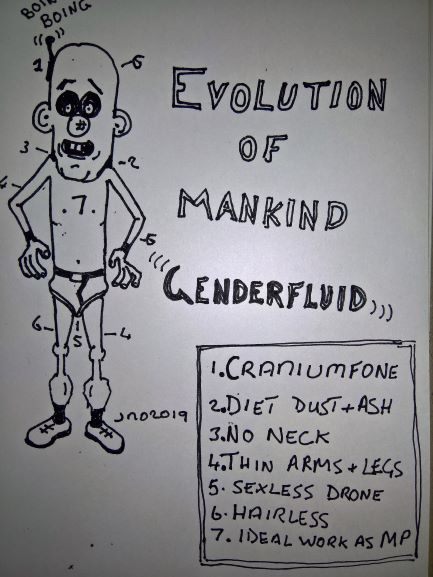 BOING
BOING
EVOLUTION
OF
MANKIND
GENDERFLUID
1
6
3
2
4
7
6
6
5
4
JMD2019
1.CRANIUMFONE
2.DIET DUST+ASH
3.NO NECK
4.THIN ARMS+LEGS
5. SEXLESS DRONE
6.HAIRLESS
7. IDEAL WORK AS MP